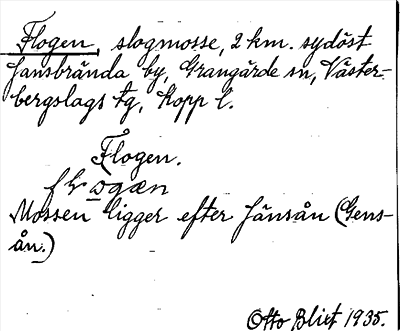 Flogen, slogmosse, 2 km. sydöst
Jansbrända by, Grangärde sn, Väster-
bergslags tg, Kopp l.
Flogen.
Mossen ligger efter Jänsån (Gens-
ån.)
Otto Blixt 1935.